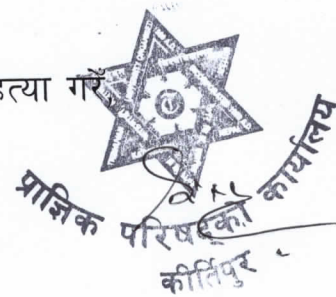 हत्या गरें,
प्राज्ञिक परिषद्को कार्यालय
कीर्तिपुर